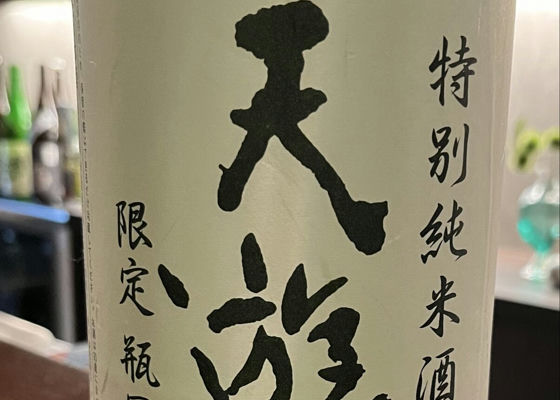 特別純米酒
天遊
限定瓶